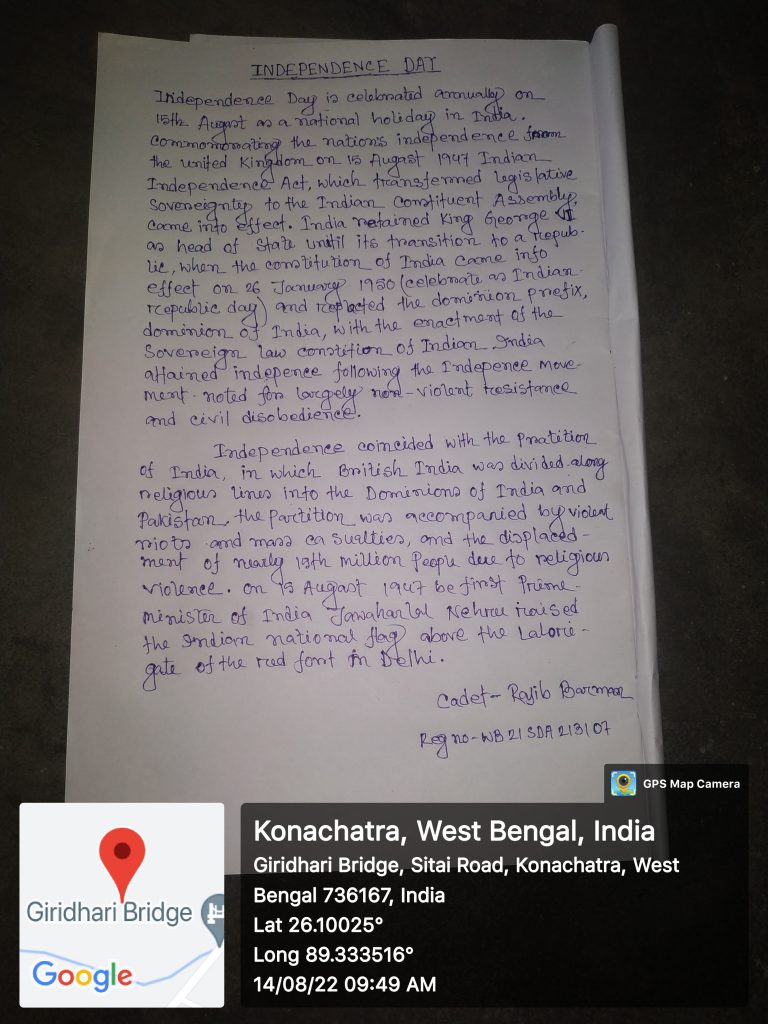 INDEPENDENCE DAY
Independence Day is celebrated annually on
15th August as a national holiday in India.
commomorating the nation's independence from
the united Kingdom on 15 August 1947 Indian
Independence Act, which transferred legislative
Sovereignty to the Indian Constituent Assembly,
came into effect. India retained King George VI
as head of State until its transition to a repub-
lic, when the constitution of India came info
effect on 26 January 1950 (celebrate as Indian
republic day) and replaced the dominion prefix,
dominion of India, with the enactment of the
Sovereign law constition of Indian. India
attained indepence following the Indepence move-
ment noted for largely non-violent resistance
and civil disobedience.
Independence coincided with the Pratition
of India, in which British India was divided along
religious lines into the Dominions of India and
Pakistan, the partition was accompanied by violent
riots and mass ca sualties, and the displaced-
ment of nearly 15th million People due to religious
violence. on 15 August 1947 be first Prime-
minister of India Jawaharlal Nehru raised
the Indian national flag above the Lahori-
gate of the red font in Delhi.
Cadet- Rajib Barman
Reg no-WB21SDA213107
GPS Map Camera
Giridhari Bridge
Google
Konachatra, West Bengal, India
Giridhari Bridge, Sitai Road, Konachatra, West
Bengal 736167, India
Lat 26.10025°
Long 89.333516°
14/08/22 09:49 AM